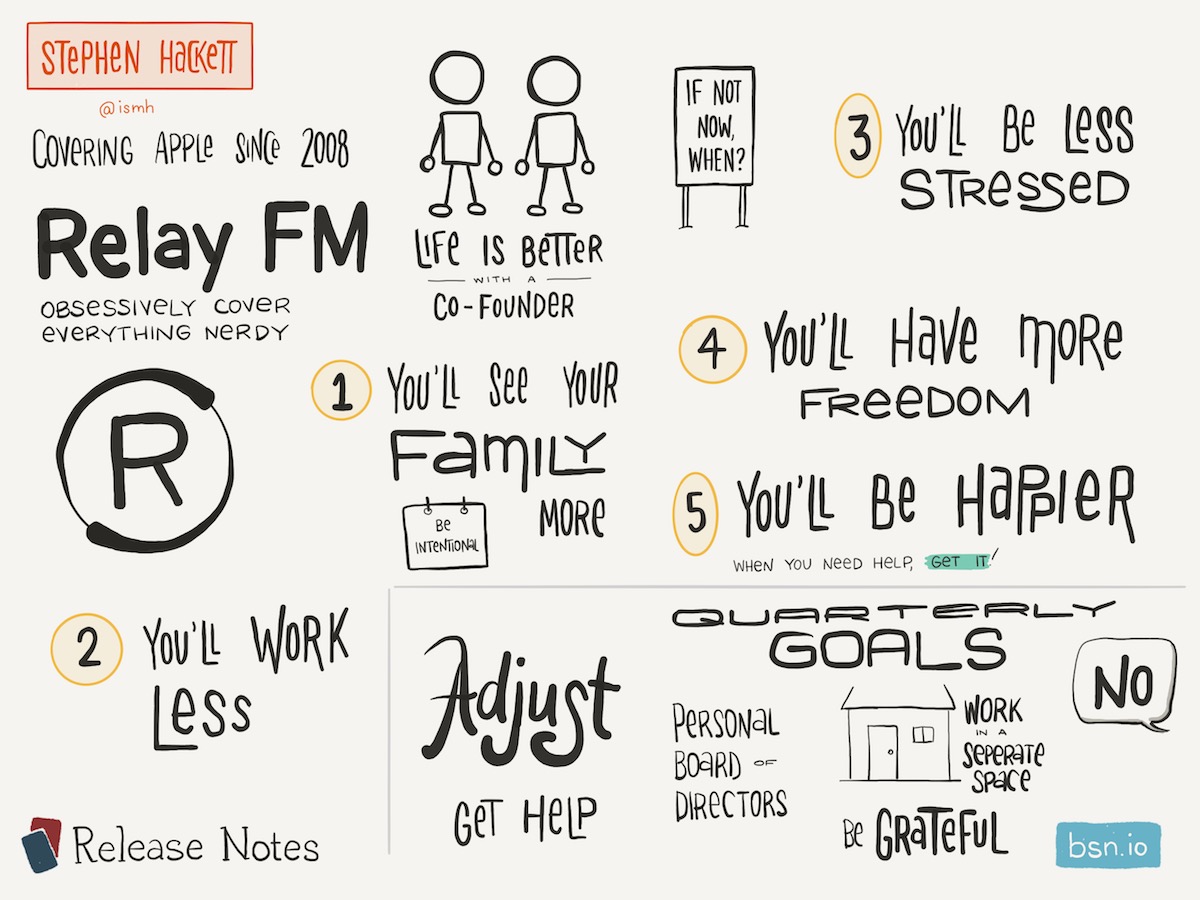 STEPHEN HACKETT
@ismh
COVERING APPLE SINCE 2008
Relay FM
OBSESSIVELY COVER
EVERYTHING NERDY
R
LIFE IS BETTER
WITH A
CO-FOUNDER
IF NOT
NOW,
WHEN?
1 YOU'LL SEE YOUR
FAMILY
MORE
BE
INTENTIONAL
2 YOU'LL WORK
LESS
3 YOU'LL BE LESS
STRESSED
4 YOU'LL HAVE MORE
FREEDOM
5 YOU'LL BE HAPPIER
WHEN YOU NEED HELP, GET IT!
Adjust
GET HELP
QUARTERLY
GOALS
PERSONAL
BOARD OF
DIRECTORS
WORK
IN A
SEPERATE
SPACE
NO
BE GRATEFUL
Release Notes
bsn.io